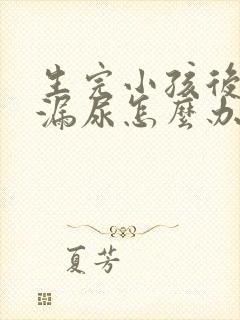 生完小孩後
漏尿怎麼办
夏芳